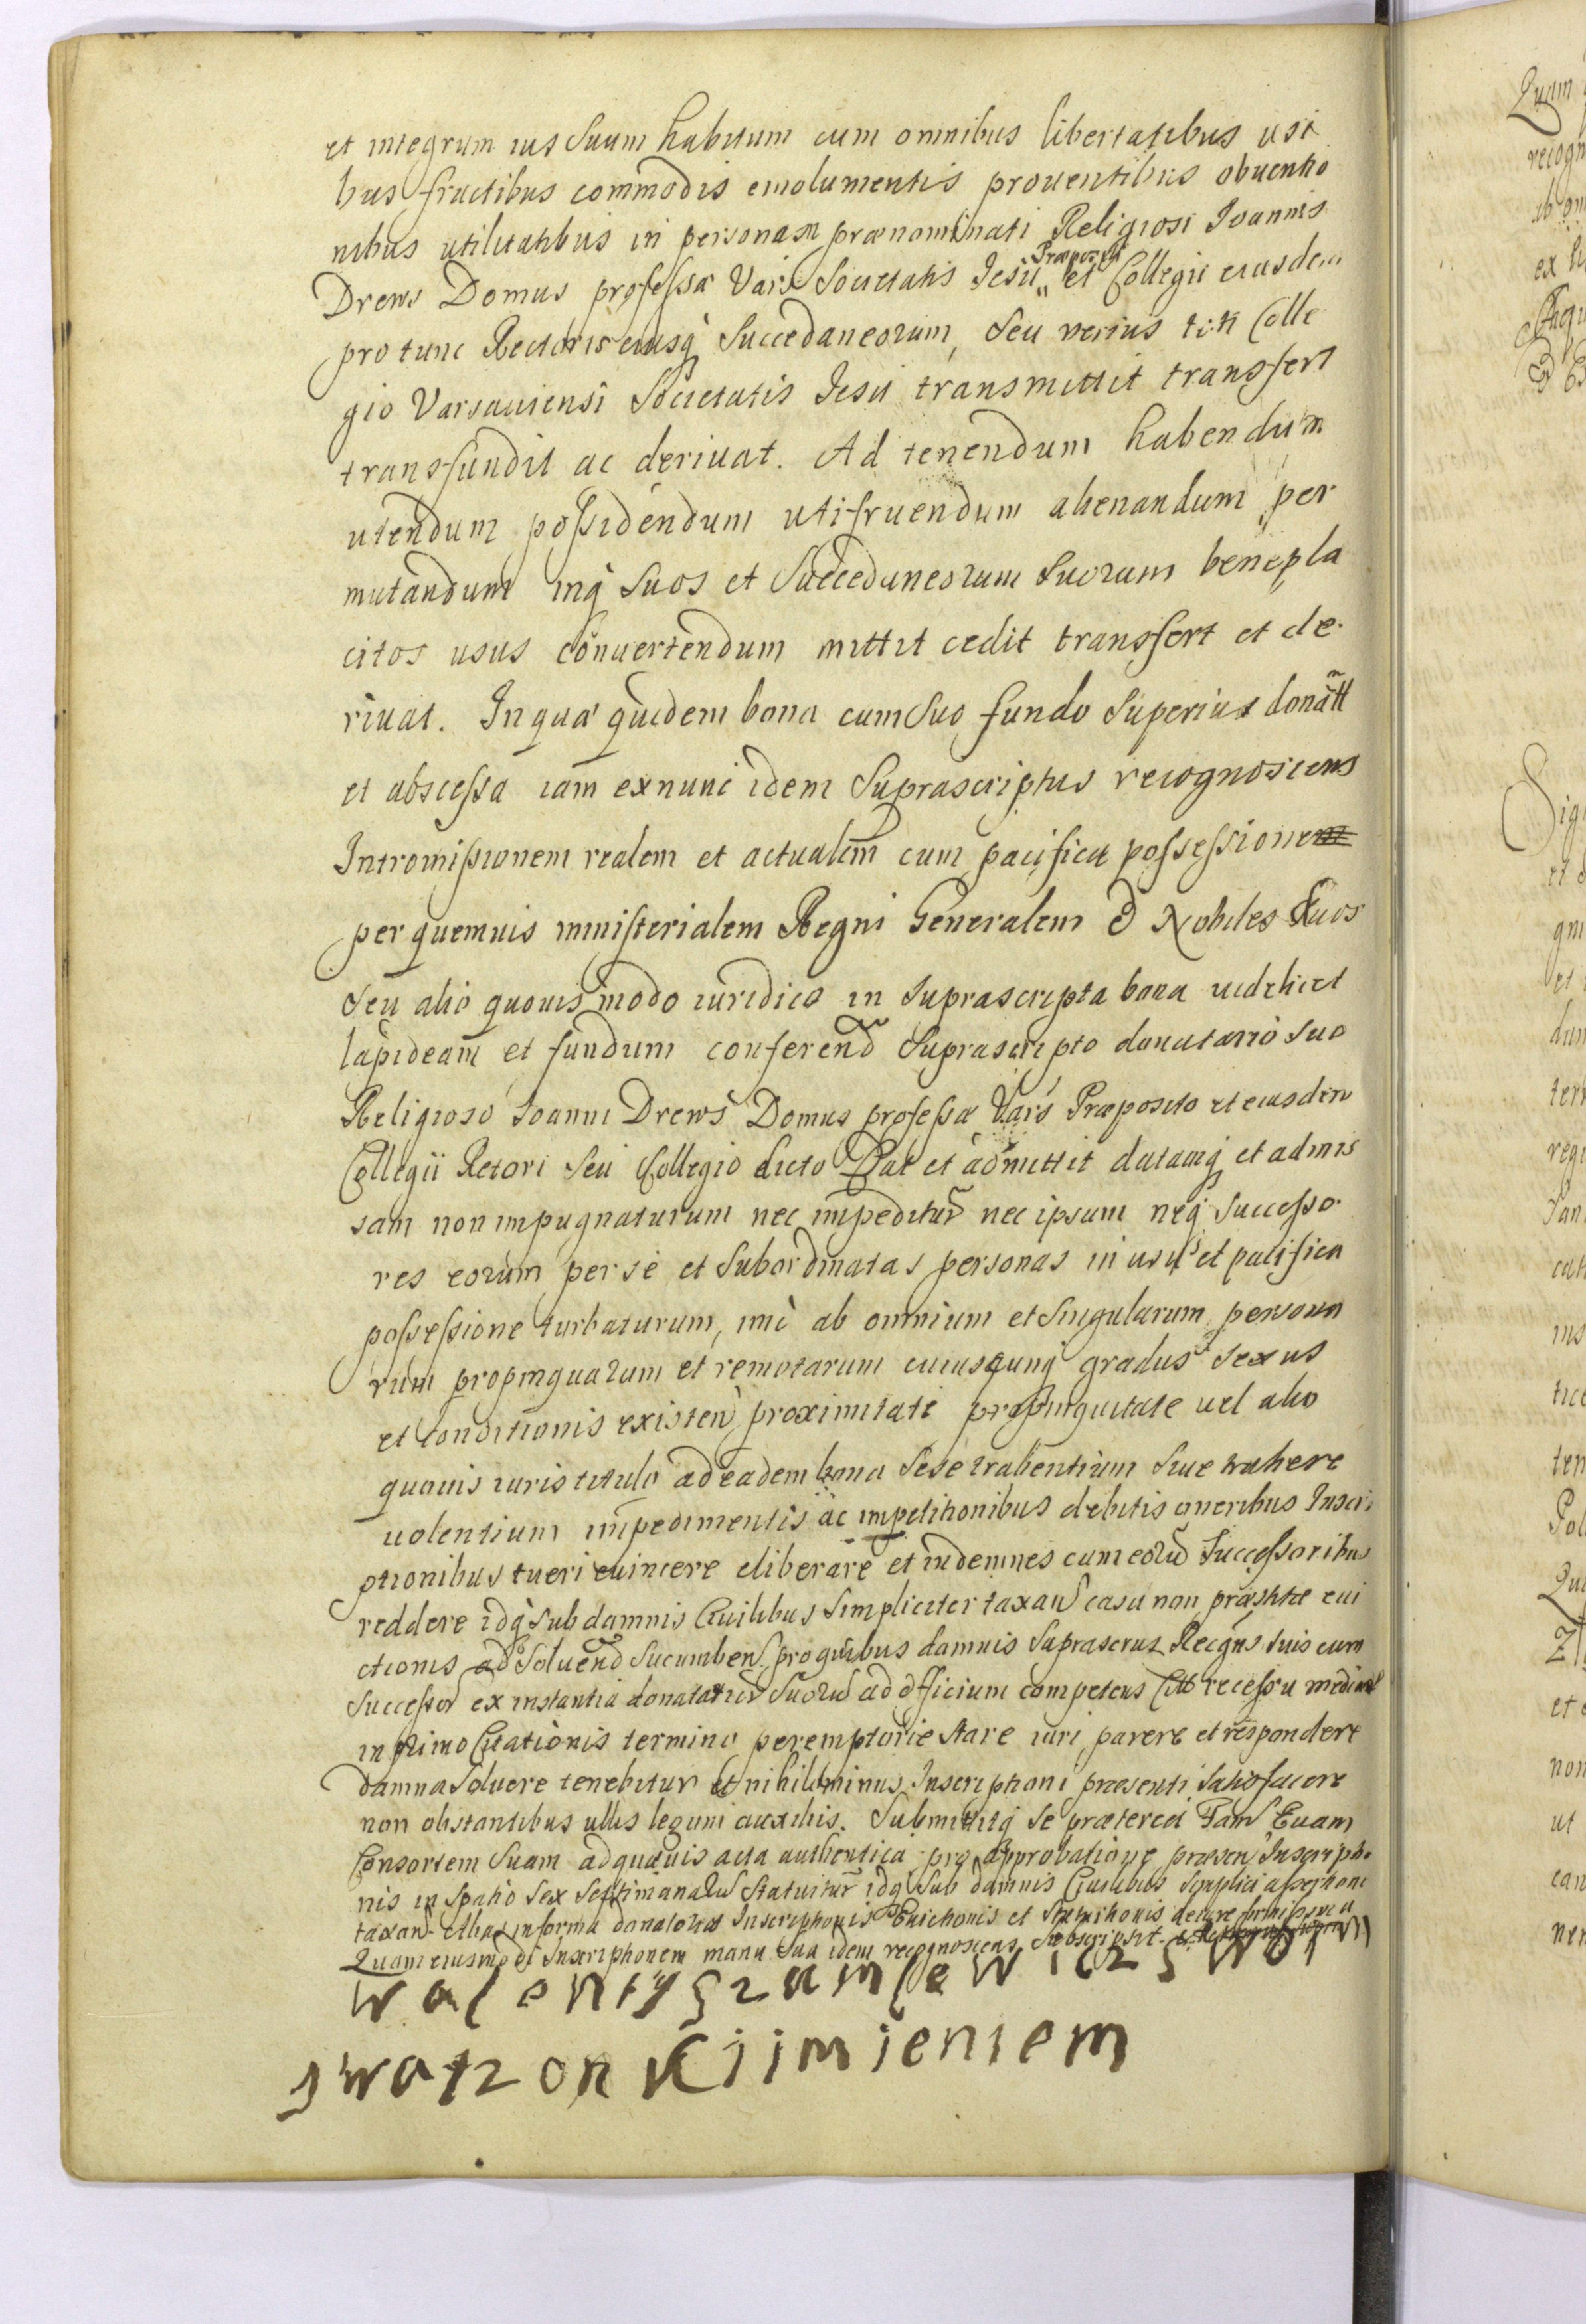 et integrum ius Suum habitum cum omnibus libertatibus usi
bus fructibus commodis emolumentis prouentibus obuentio
nibus utilitatibus in personam prænominati Religiosi Ioannis
Præpositi
Drews Domus professæ Vars Societatis Iesu et Collegii eiusdem
pro tunc Rectoris eiusq Succedaneorum, Seu verius toti Colle
gio Varsauiensi Societatis Iesu transmittit transfert
transfundit ac deriuat. Ad tenendum habendum
utendum possidendum utifruendum alienandum per
mutandum inq Suos et Succedaneorum Suorum benepla
citos usus conuertendum mittit cedit transfert et de
riuat. In qua quidem bona cum Suo fundo Superius donatt
et abscessa iam exnunc idem Suprascriptus recognoscens
Intromissionem realem et actualem cum pacifica possessione
per quemuis ministerialem Regni Generalem & Nobiles duos
Seu alio quouis modo iuridico in Suprascripta bona uidelicet
lapideam et fundum conferend Suprascripto donatario Suo
Religioso Ioanni Drews Domus professæ Vars Præposito et eiusdem
Collegii Retori Seu Collegio dicto Dat et admittit datamq et admis
sam non impugnaturum nec impeditur nec ipsum neq Successo
res eorum per se et Subordinatas personas in usu et pacifica
possessione turbaturum, imo ab omnium et Singularum persona
rum propinquarum et remotarum cuiusqunq gradus Sexus
et conditionis existen proximitate propinquitate uel alio
quouis iuris titulo ad eadem bona Sese trahentium Siue trahere
uolentium impedimentis ac impetitionibus debitis oneribus Inscri
ptionibus tueri euincere eliberare et indemnes cum eorum Successoribus
reddere idq Sub damnis Ciuilibus Simpliciter taxan casu non præstitæ eui
ctionis ad Soluend Sucumben pro quibus damnis Suprascrus Recgns Suis cum
Successor ex instantia donatarior Suoru ad officium competens Citt recessu median
in primo Citationis termino peremptorie Stare iuri parere et respondere
damna Soluere tenebitur et nihilominus Inscriptioni præsenti Satisfacere
non obstantibus ullis legum auxiliis. Submittitq Se præterea Fam Euam
Consortem Suam ad quæuis acta authentica pro approbatione præsen Inscriptio
nis in Spatio Sex Septimanaru Statuitur idq Sub damnis Ciuilibus simplici assertione
taxan Alias in forma donatoriæ Inscriptionis Euictionis et
Quam eiusmodi Inscriptionem manu Sua idem recognoscens Subscripsit
walenty szamlewicz swoim
swat zonki imieniem